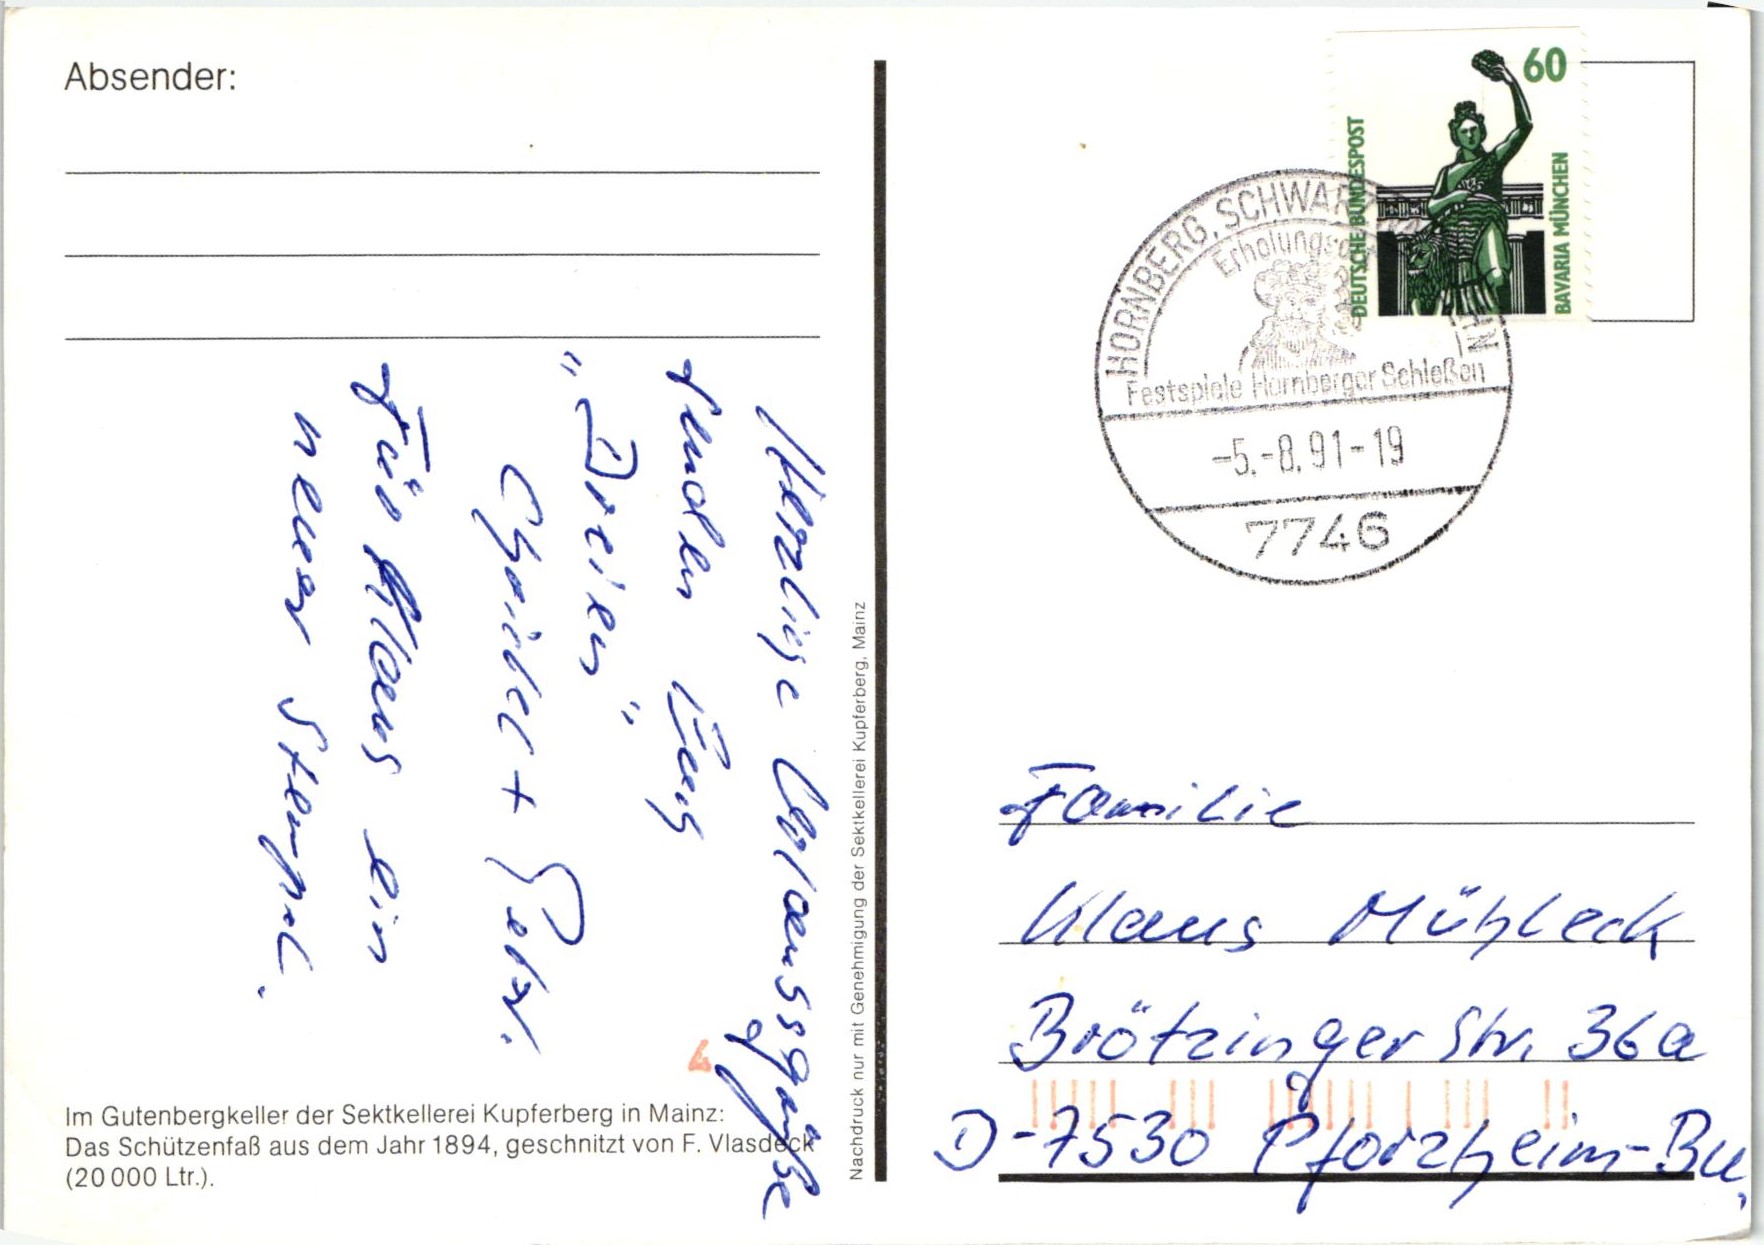 Absender:
Herzlige Urlaussgrüße
senden Euch
"Dreien"
+ Peter.
Für Klaus ein
neuer Stempel.
Im Gutenbergkeller der Sektkellerei Kupferberg in Mainz:
Das Schützenfaß aus dem Jahr 1894, geschnitzt von F. Vlasdeck
(20 000 Ltr.).
Nachdruck nur mit Genehmigung der Sektkellerei Kupferberg, Mainz
60
DEUTSCHE BUNDESPOST
BAVARIA MÜNCHEN
HORNBERG, SCHWARZ
Erholungs
Festspiele Hornberger Schießen
-5.-8.91-19
7746
Familie
Klaus Mühleck
Brötzinger Str. 36a
D-7530 Pforzheim-Bü.